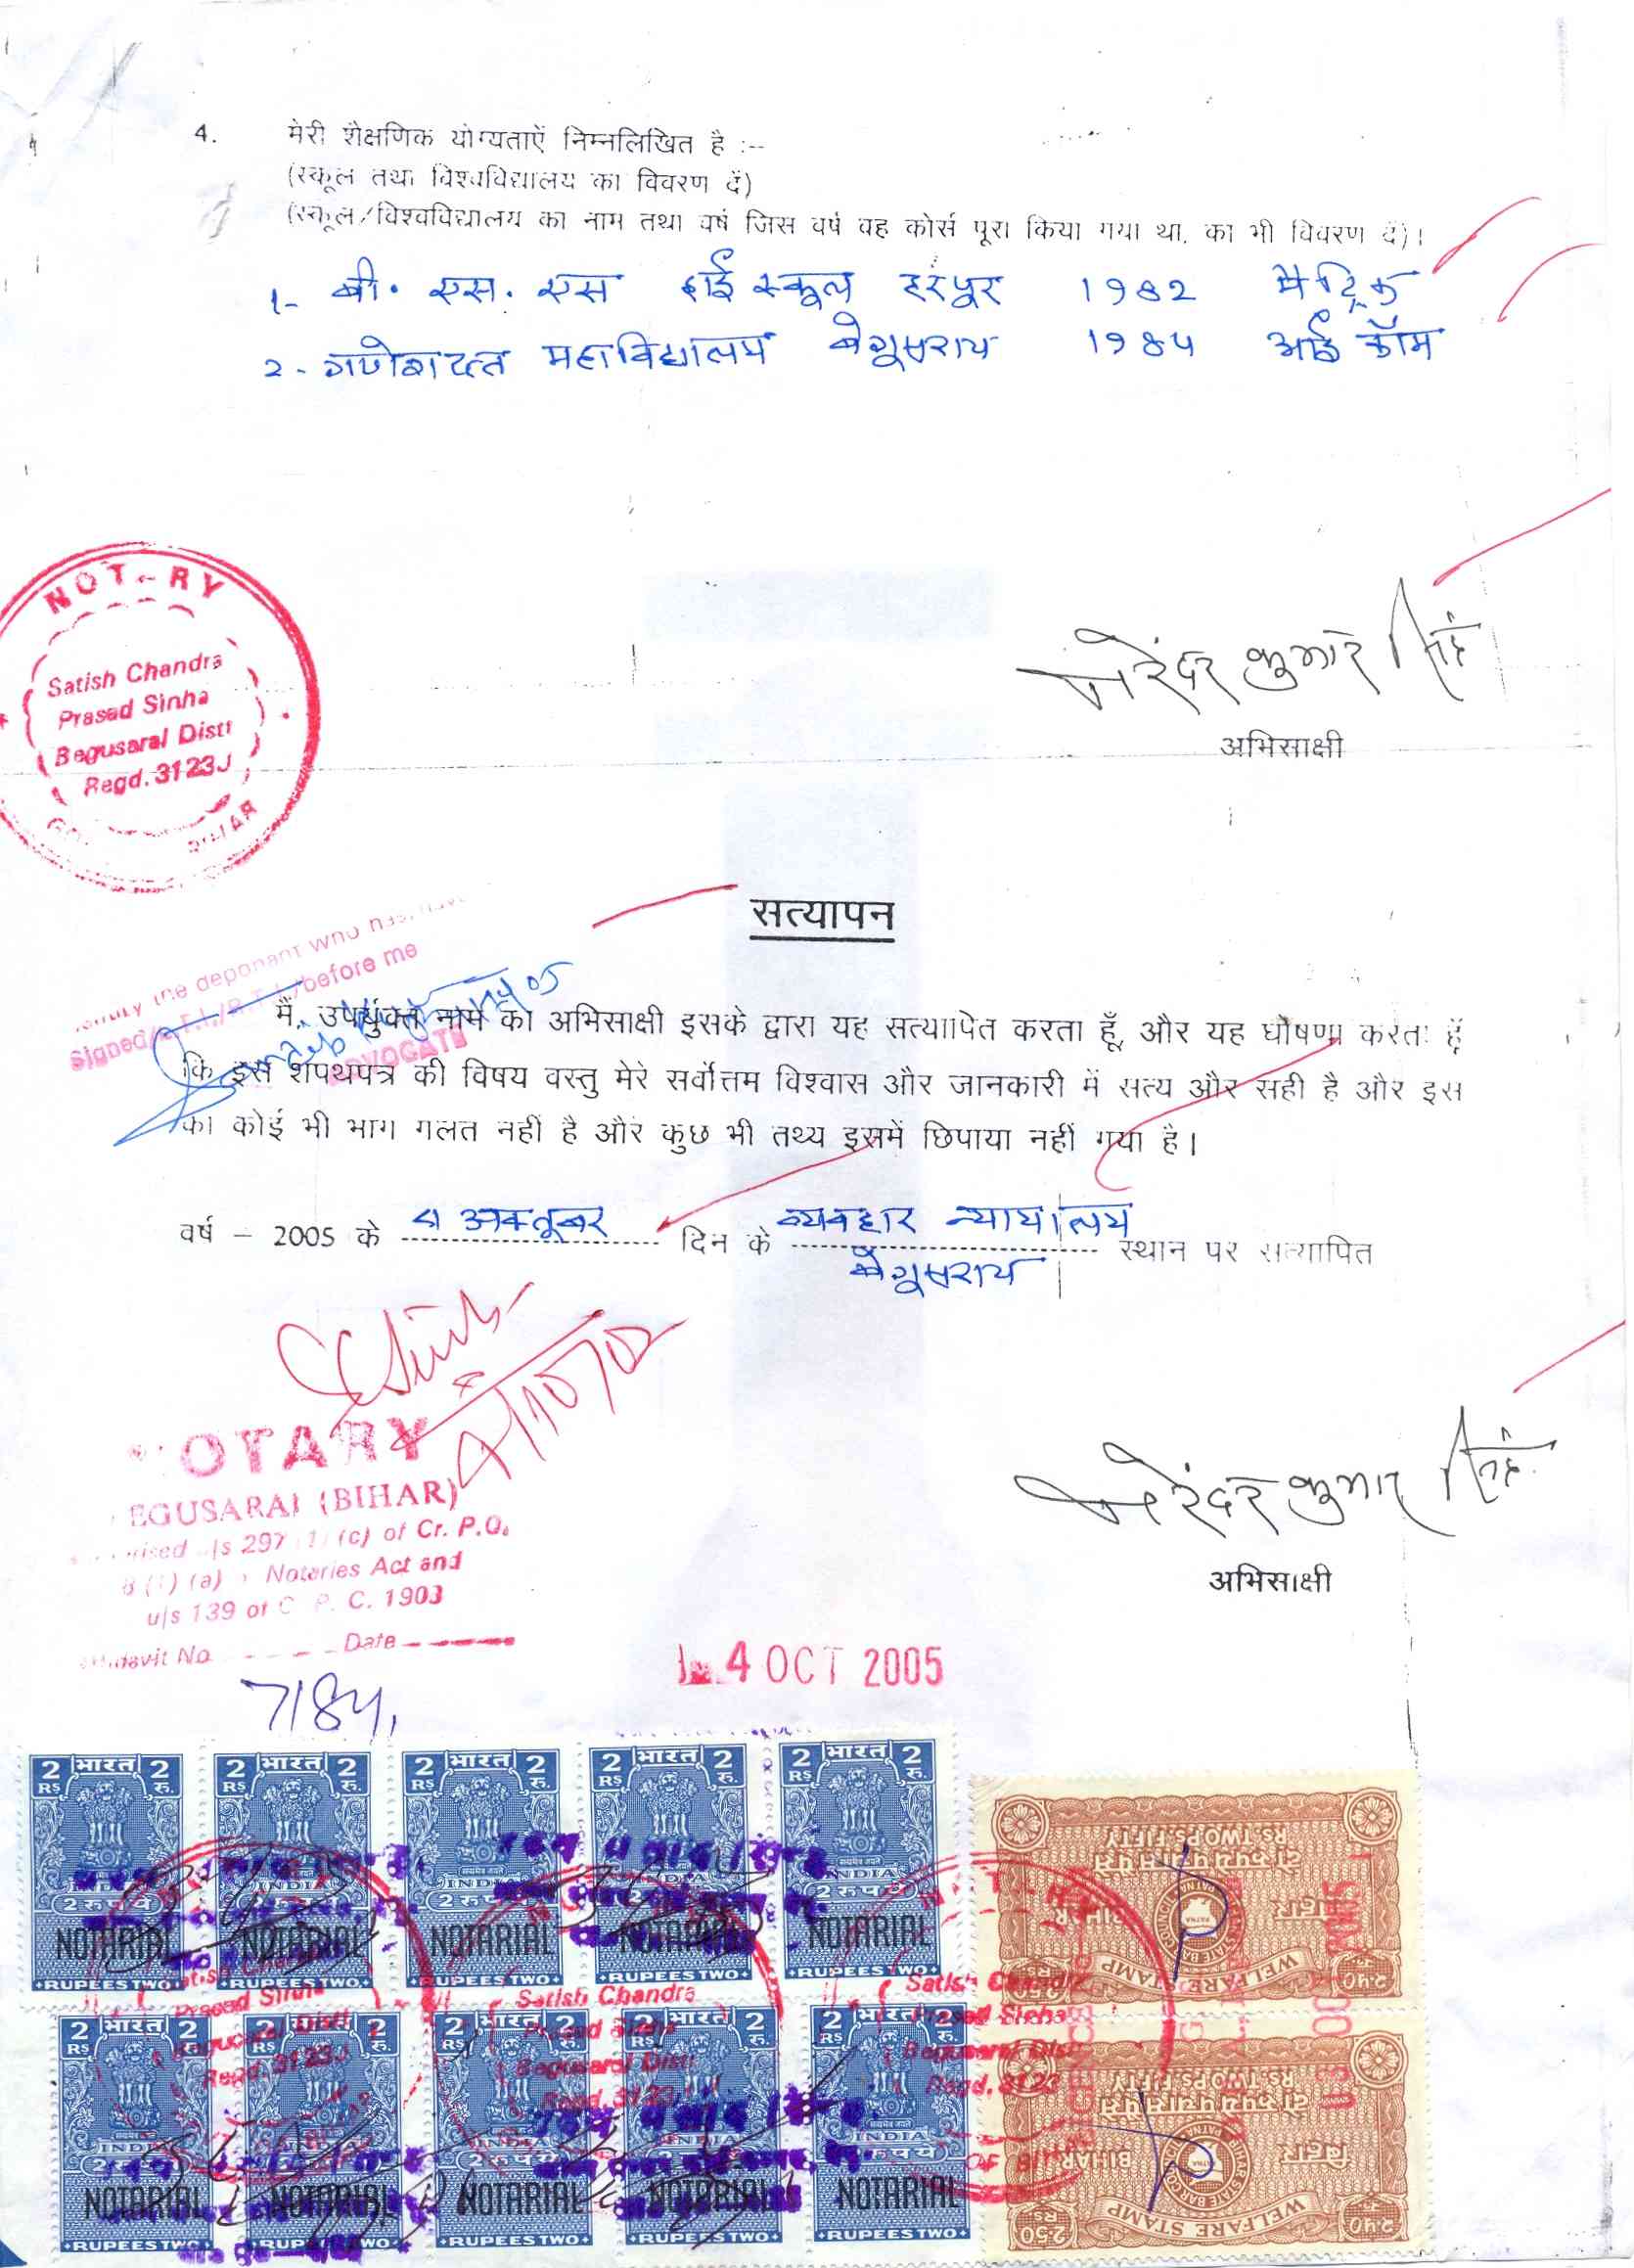 4. मेरी शैक्षणिक योग्यताऐं निम्नलिखित है :--
(स्कूल तथा विश्वविद्यालय का विवरण दें)
(स्कूल/विश्वविद्यालय का नाम तथा वर्ष जिस वर्ष वह कोर्स पूरा किया गया था, का भी विवरण दें)।
1- बी. एस. एस हाई स्कूल हरपूर 1982 मैट्रिक
2- गणेशदत्त महाविद्यालय बेगूसराय 1984 आई कॉम
NOT RY
Satish Chandra
Prasad Sinha
Begusarai Distt
Regd. 3123J
BIHAR
नरेंदर कुमार सिंह
अभिसाक्षी
सत्यापन
the deponant who
Signed before me
ADVOCATE
मैं, उपर्युक्त नाम का अभिसाक्षी इसके द्वारा यह सत्यापित करता हूँ, और यह घोषणा करता हूँ
कि इस शपथपत्र की विषय वस्तु मेरे सर्वोत्तम विश्वास और जानकारी में सत्य और सही है और इस
का कोई भी भाग गलत नहीं है और कुछ भी तथ्य इसमें छिपाया नहीं गया है।
वर्ष – 2005 के 4 अक्तूबर दिन के व्यवहार न्यायालय स्थान पर सत्यापित
बेगूसराय
OTARY
EGUSARAI (BIHAR)
u/s 297 (1) (c) of Cr. P.C.
8 (1) (a) Noteries Act and
u/s 139 of C. P. C. 1903
Affidavit No. Date
7184
नरेंदर कुमार सिंह
अभिसाक्षी
4 OCT 2005
2 भारत 2 2 भारत 2 2 भारत 2 2 भारत 2 2 भारत 2
RS रु. RS रु. RS रु. RS रु. RS रु.
INDIA INDIA INDIA INDIA INDIA
NOTARIAL NOTARIAL NOTARIAL NOTARIAL NOTARIAL
RUPEES TWO RUPEES TWO RUPEES TWO RUPEES TWO RUPEES TWO
Satish Chandra
Prasad Sinha
Begusarai Distt
Regd. 3123J
2 भारत 2 2 भारत 2 2 भारत 2 2 भारत 2 2 भारत 2
RS रु. RS रु. RS रु. RS रु. RS रु.
INDIA INDIA INDIA INDIA INDIA
NOTARIAL NOTARIAL NOTARIAL NOTARIAL NOTARIAL
RUPEES TWO RUPEES TWO RUPEES TWO RUPEES TWO RUPEES TWO
RS. TWO PS. FIFTY
दो रुपये पचास पैसे
बिहार BIHAR
WELFARE STAMP
2.50
RS. TWO PS. FIFTY
दो रुपये पचास पैसे
बिहार BIHAR
WELFARE STAMP
2.50